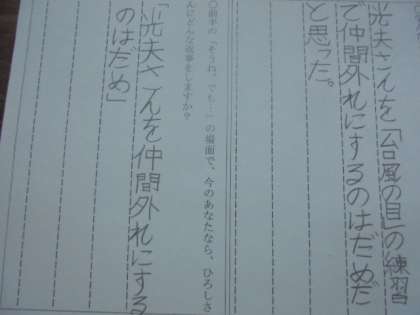 光夫さんを「台風の目」の練習
で仲間外れにするのはだめだ
と思った。
○前半の「そうね、でも――」の場面で、今のあなたなら、ひろしさ
んにどんな返事をしますか？
「光夫さんを仲間外れにする
のはだめ」